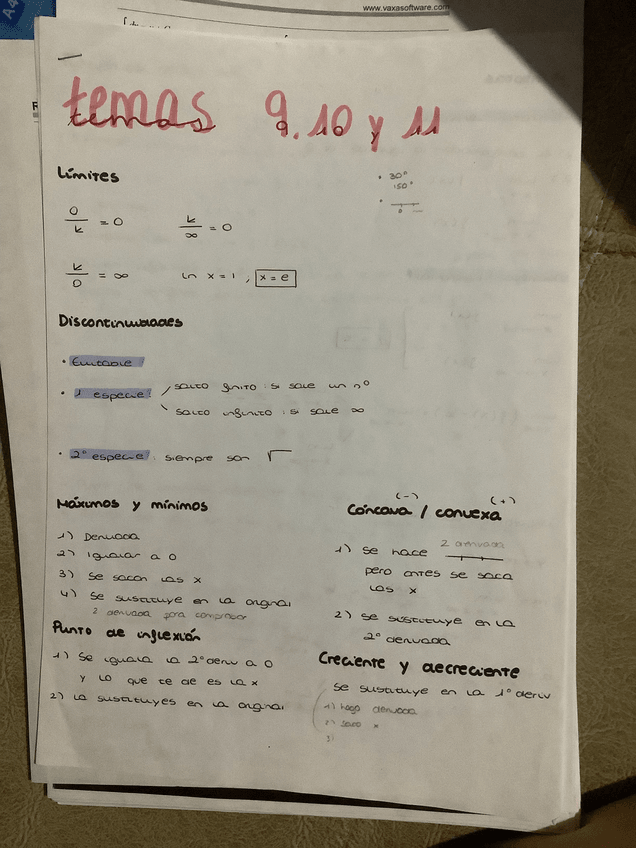 www.vaxasoftware.com
temas 9, 10 y 11
temas 9, 10 y 11
Límites
• 30°
150°
•
0
0/k = 0
k/∞ = 0
k/0 = ∞
ln x = 1, x = e
Discontinuidades
• Evitable
• 1 especie: salto finito: si sale un nº
salto infinito: si sale ∞
• 2ª especie: siempre son √
Máximos y mínimos
1) Derivada
2) Igualar a 0
3) Se sacan las x
4) Se sustituye en la original
2 derivada para comprobar
Punto de inflexión
1) Se iguala la 2ª deriv a 0
y lo que te de es la x
2) La sustituyes en la original
(-) (+)
Cóncava / convexa
1) Se hace 2 derivada
pero antes se saca
las x
2) Se sustituye en la
2ª derivada
Creciente y decreciente
Se sustituye en la 1ª deriv
1) hago derivada
2) saco x
3)